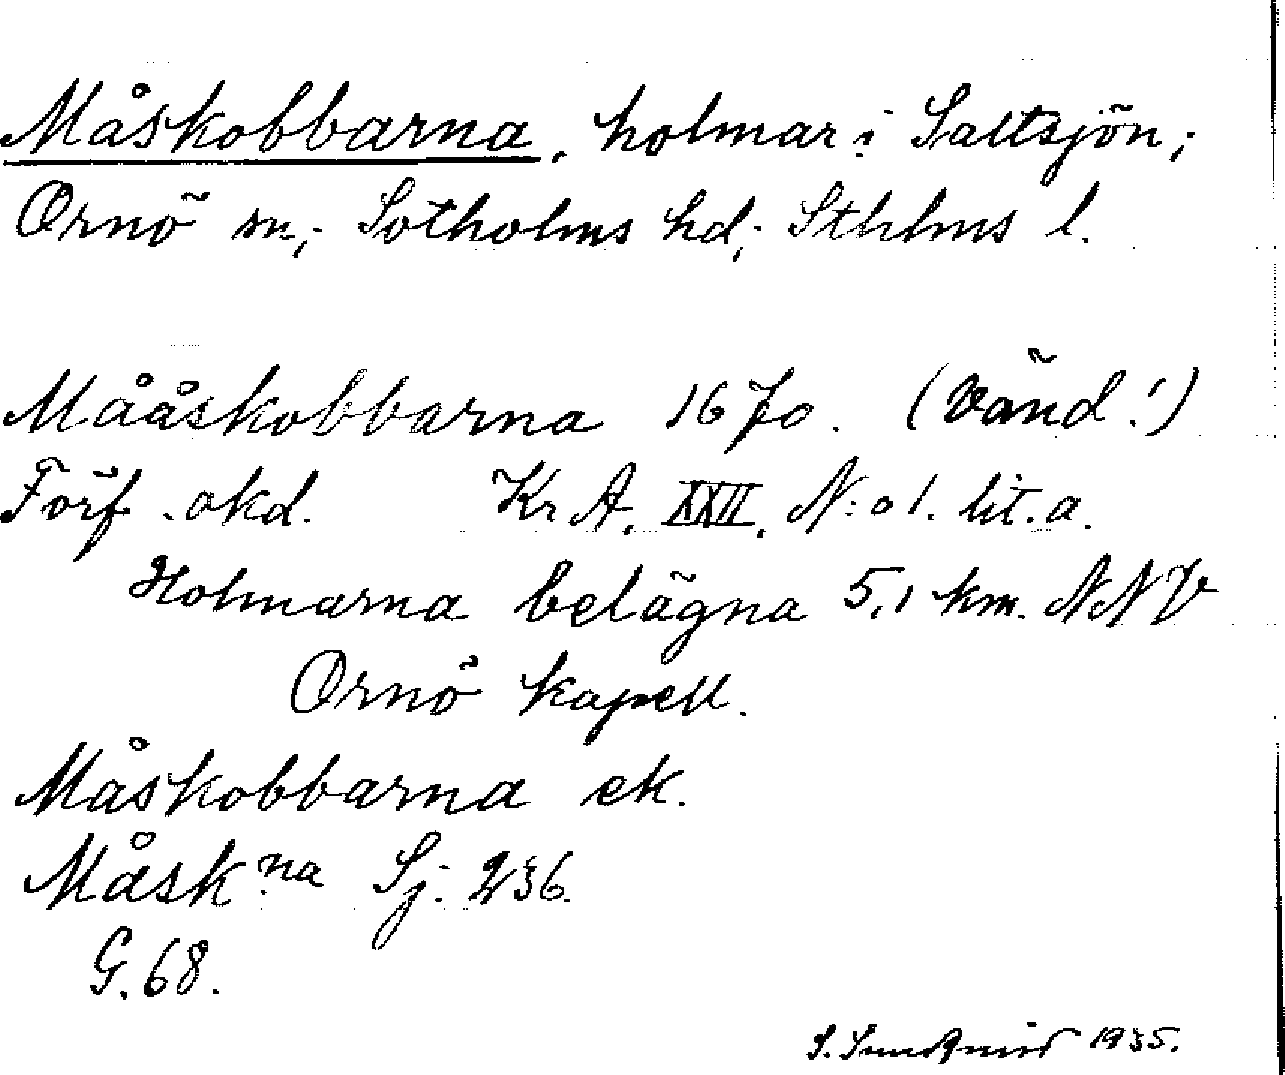 Måskobbarna, holmar i Saltsjön;
Ornö sn; Sotholms hd; Sthlms l.
Mååskobbarna 1670. (Vänd!)
Förf. okd. Kr A. XXII. N:o 1. lit. a.
Holmarna belägna 5,1 km. NNV
Ornö kapell.
Måskobbarna ek.
Måsk:na Sj. 236.
G. 68.
S. Sundqvist 1935.